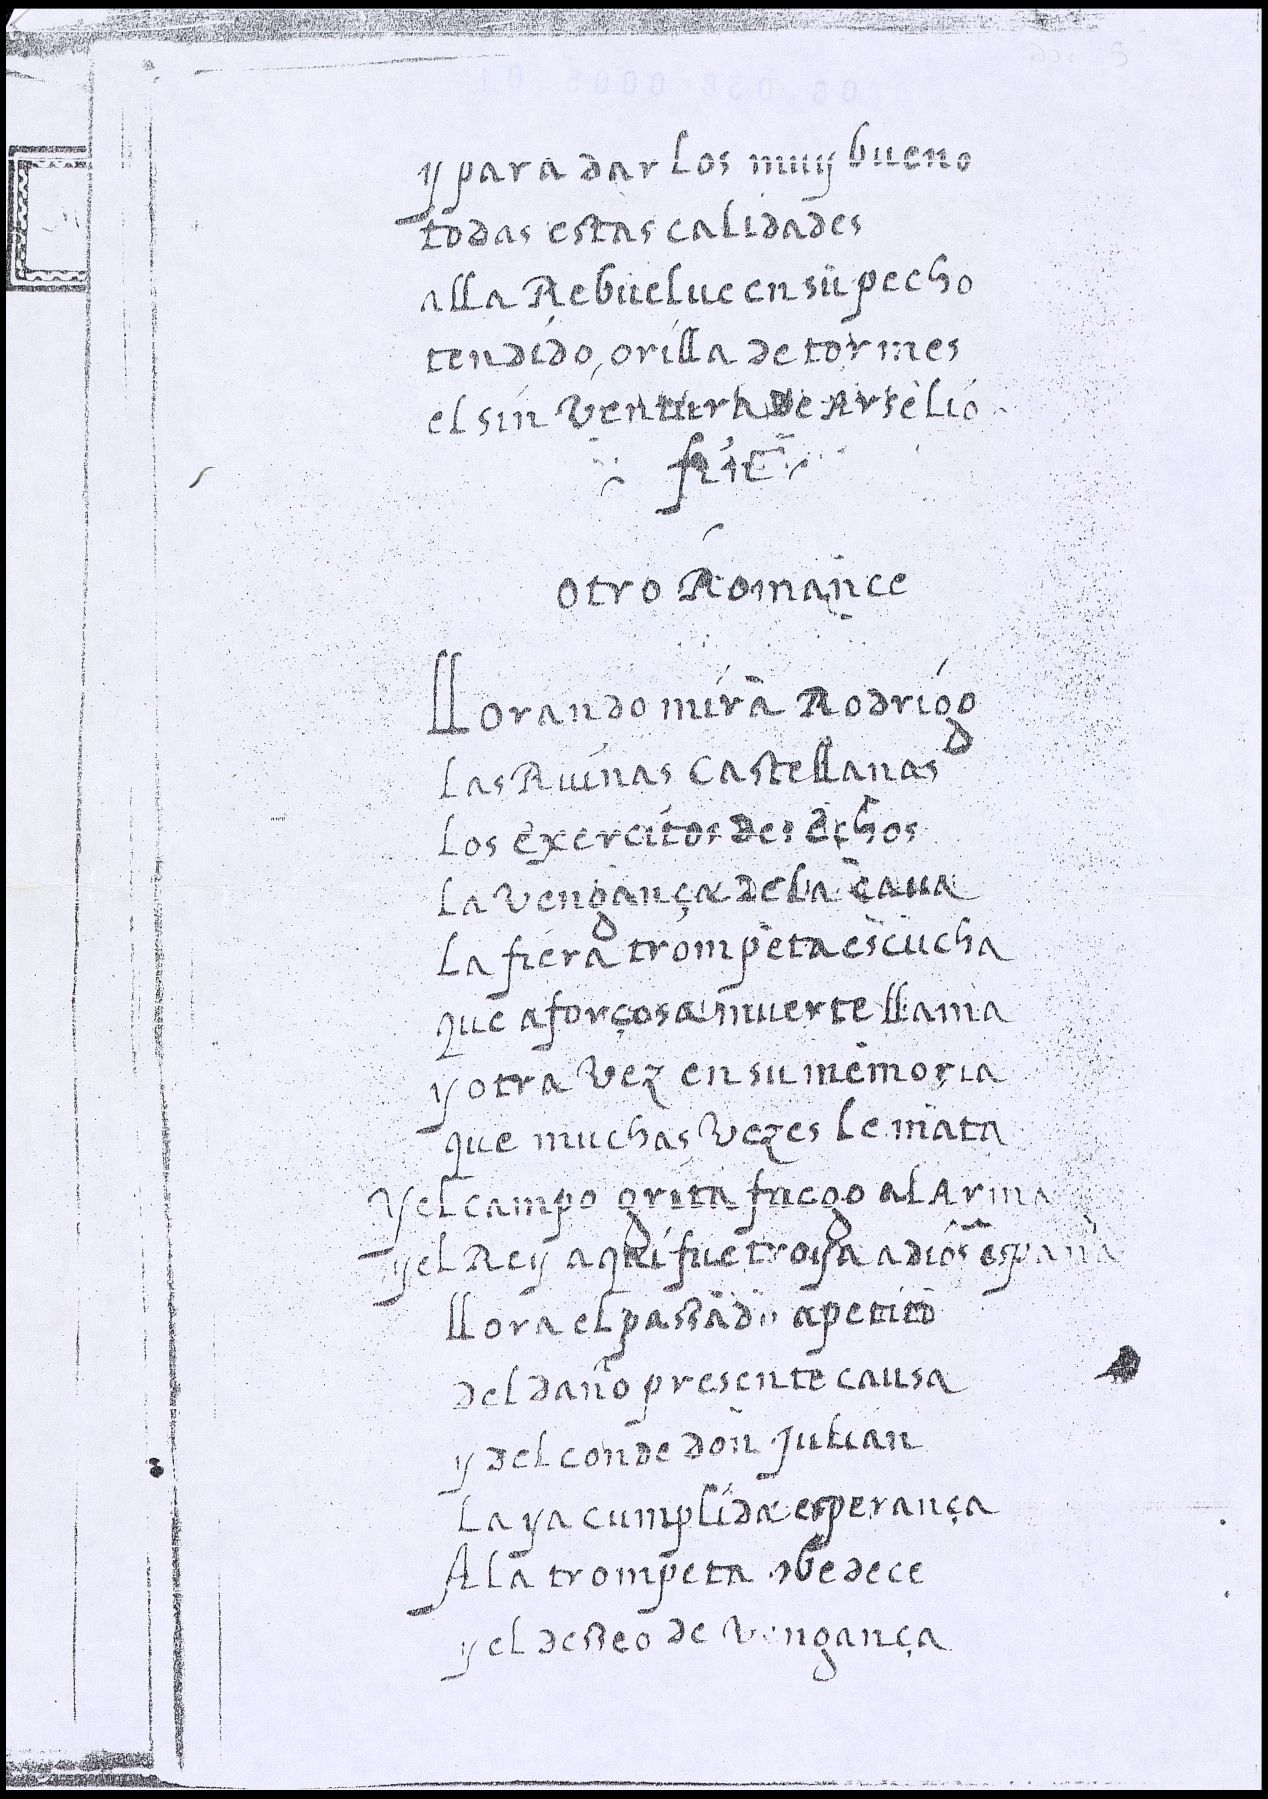 y para dar los muy bueno
todas estas calidades
alla Rebuelue en su pecho
tendido, orilla de tormes
el sin Ventura de Arselio
fin
otro Romançe
llorando mira Rodrigo
las Ruinas Castellanas
los exercitos desechos
la vengança de la caua
la fiera trompeta escucha
que a forçosa muerte llama
y otra vez en su memoria
que muchas vezes le mata
y el campo grita fuego al Arma
y el Rey aqui fue troya adios españa
llora el passado apetito
del daño presente causa
y del conde don Julian
la ya cumplida esperança
A la trompeta obedece
y el desseo de vengança